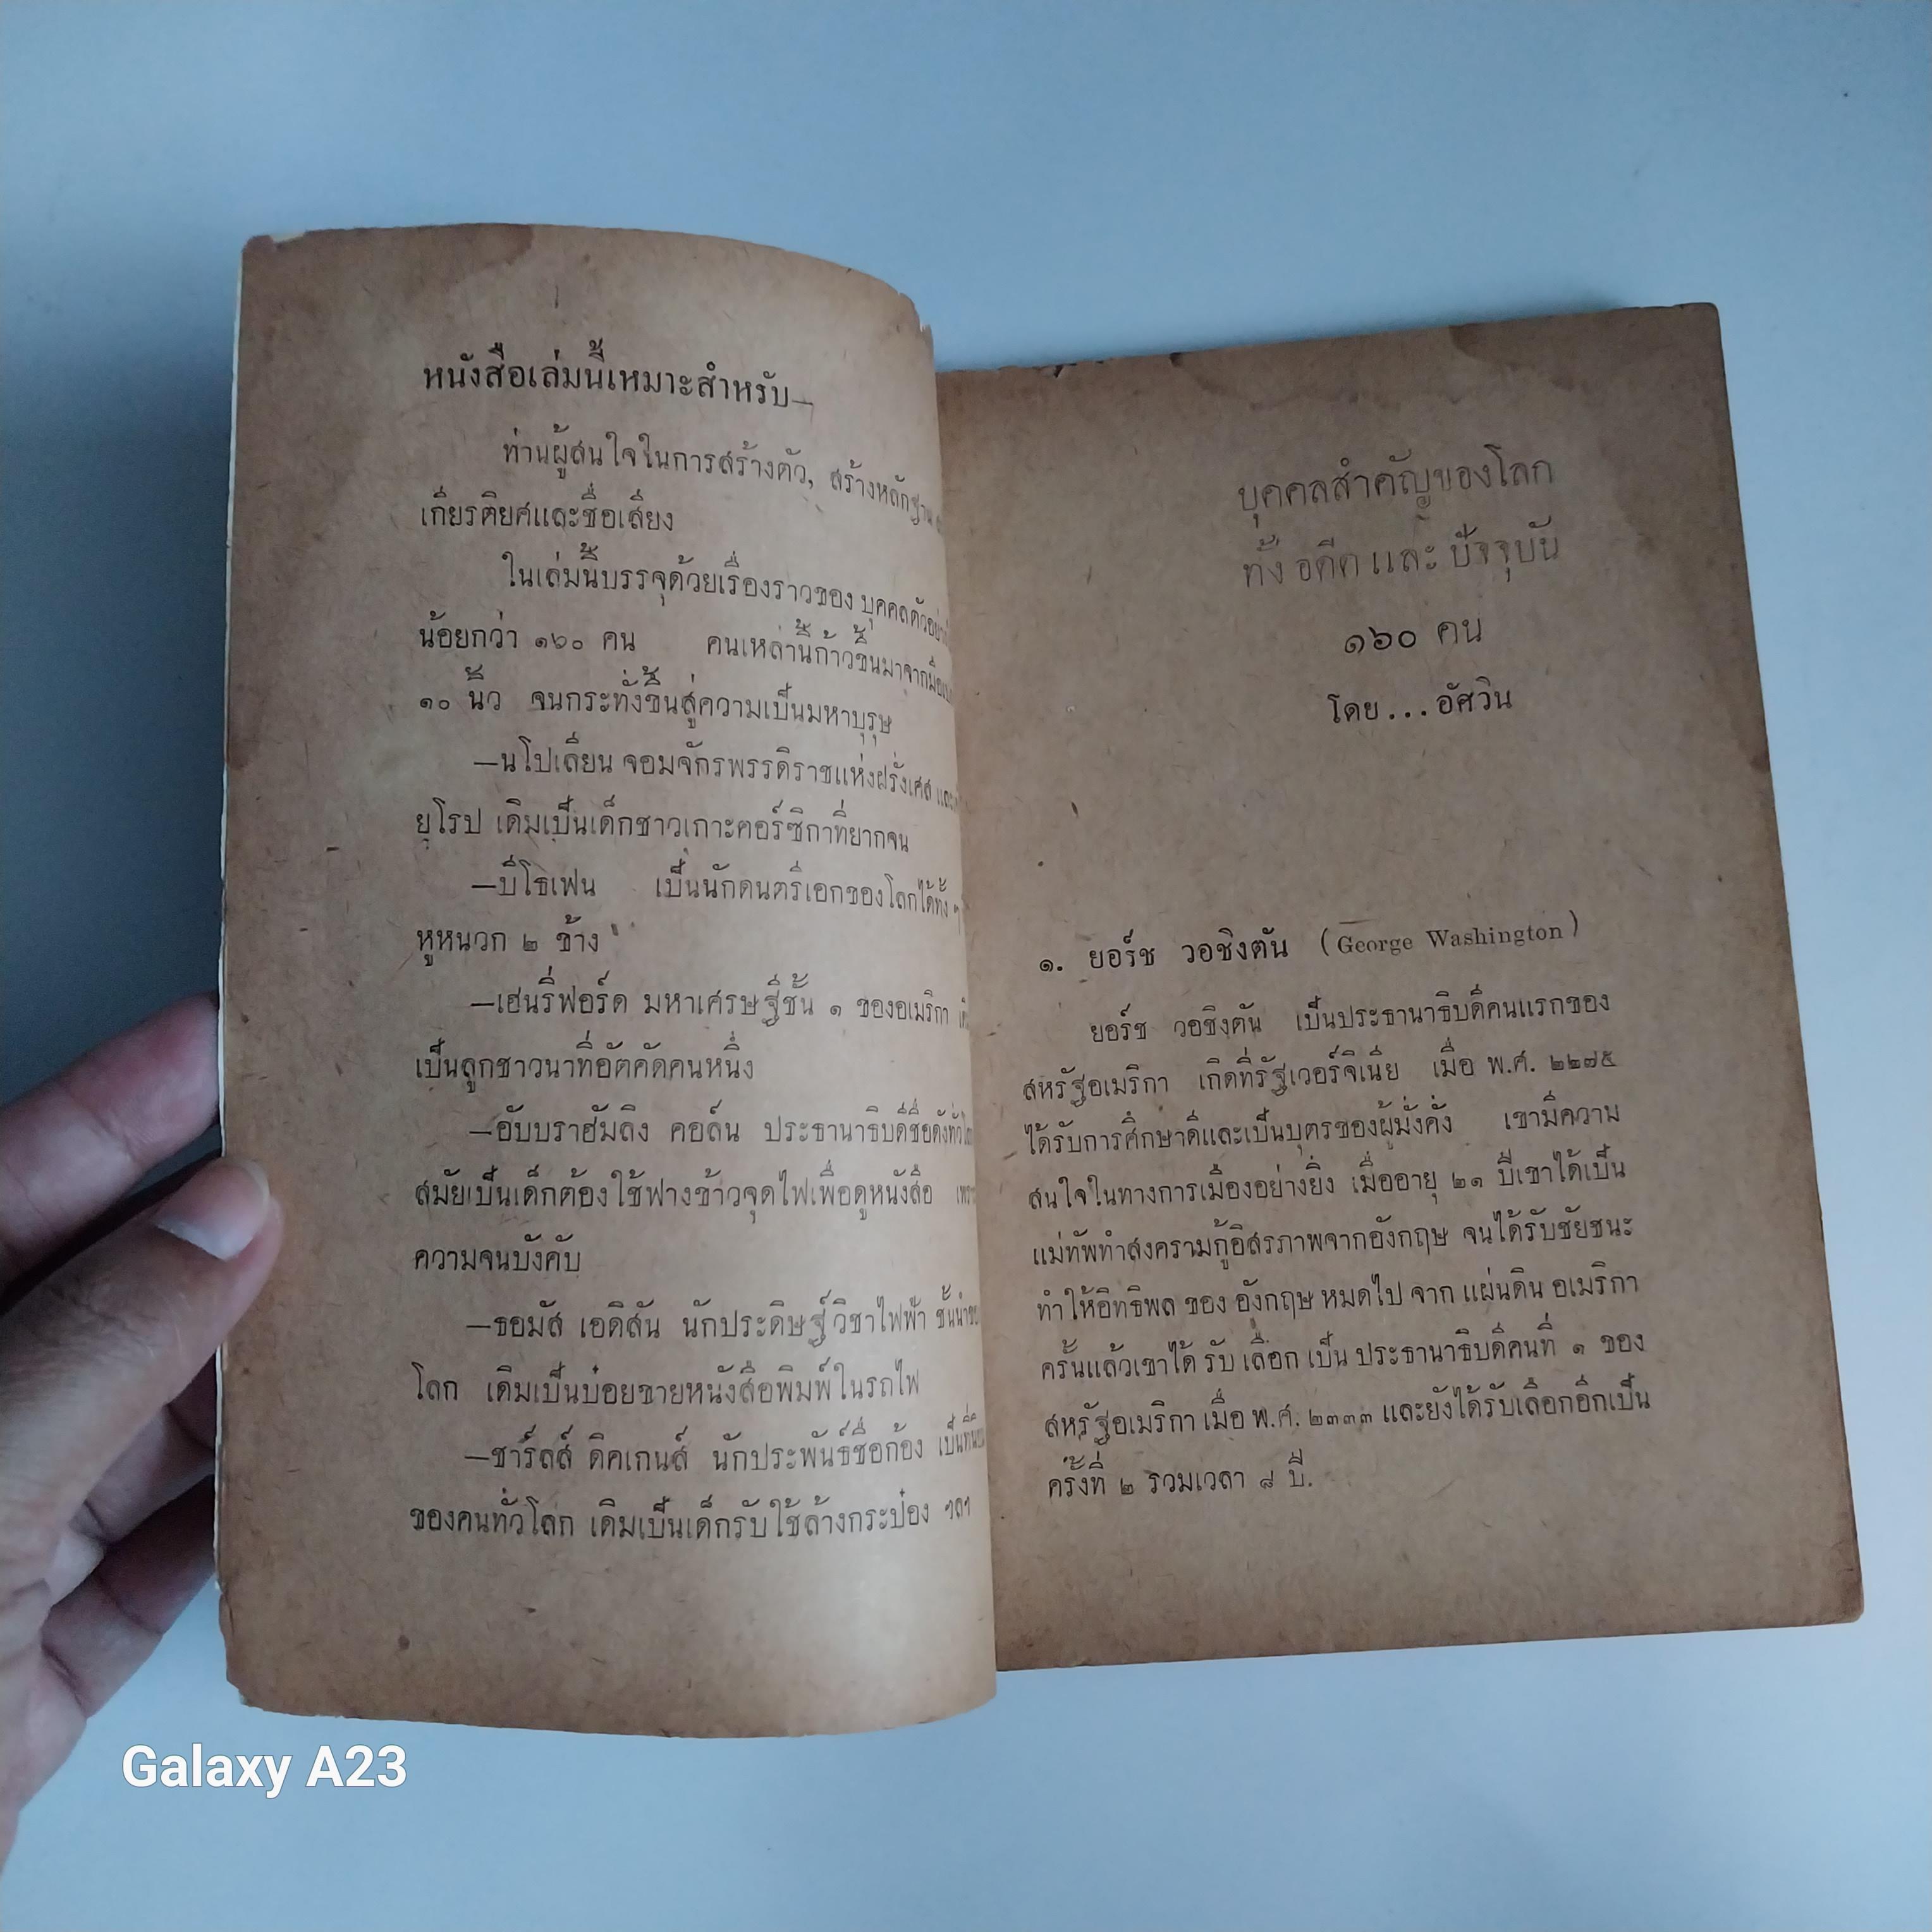 หนังสือเล่มนี้เหมาะสำหรับ—
ท่านผู้สนใจในการสร้างตัว, สร้างหลักฐาน
เกียรติยศและชื่อเสียง
ในเล่มนี้บรรจุด้วยเรื่องราวของ บุคคลตัวอย่าง
น้อยกว่า ๑๖๐ คน คนเหล่านี้ก้าวขึ้นมาจากมือเปล่า
๑๐ นิ้ว จนกระทั่งขึ้นสู่ความเป็นมหาบุรุษ
—นโปเลียน จอมจักรพรรดิราชแห่งฝรั่งเศส และ
ยุโรป เดิมเป็นเด็กชาวเกาะคอร์ซิกาที่ยากจน
—บีโธเฟน เป็นนักดนตรีเอกของโลกได้ทั้ง ๆ
หูหนวก ๒ ข้าง
—เฮนรี่ฟอร์ด มหาเศรษฐีชั้น ๑ ของอเมริกา
เป็นลูกชาวนาที่อัตคัดคนหนึ่ง
—อับบราฮัมลิง คอล์น ประธานาธิบดีชื่อดังทั่ว
สมัยเป็นเด็กต้องใช้ฟางข้าวจุดไฟเพื่อดูหนังสือ
ความจนบังคับ
—ธอมัส เอดิสัน นักประดิษฐ์วิชาไฟฟ้า ชั้นนำ
โลก เดิมเป็นบ๋อยขายหนังสือพิมพ์ในรถไฟ
—ชาร์ลส์ ดิคเกนส์ นักประพันธ์ชื่อก้อง เป็นที่
ของคนทั่วโลก เดิมเป็นเด็กรับใช้ล้างกระป๋อง ฯลฯ
บุคคลสำคัญของโลก
ทั้ง อดีต และ ปัจจุบัน
๑๖๐ คน
โดย...อัศวิน
๑. ยอร์ช วอชิงตัน (George Washington)
ยอร์ช วอชิงตัน เป็นประธานาธิบดีคนแรกของ
สหรัฐอเมริกา เกิดที่รัฐเวอร์จิเนีย เมื่อ พ.ศ. ๒๒๗๕
ได้รับการศึกษาดีและเป็นบุตรของผู้มั่งคั่ง เขามีความ
สนใจในทางการเมืองอย่างยิ่ง เมื่ออายุ ๒๑ ปีเขาได้เป็น
แม่ทัพทำสงครามกู้อิสรภาพจากอังกฤษ จนได้รับชัยชนะ
ทำให้อิทธิพล ของ อังกฤษ หมดไป จาก แผ่นดิน อเมริกา
ครั้นแล้วเขาได้ รับ เลือก เป็น ประธานาธิบดีคนที่ ๑ ของ
สหรัฐอเมริกา เมื่อ พ.ศ. ๒๓๓๓ และยังได้รับเลือกอีกเป็น
ครั้งที่ ๒ รวมเวลา ๘ ปี.
Galaxy A23